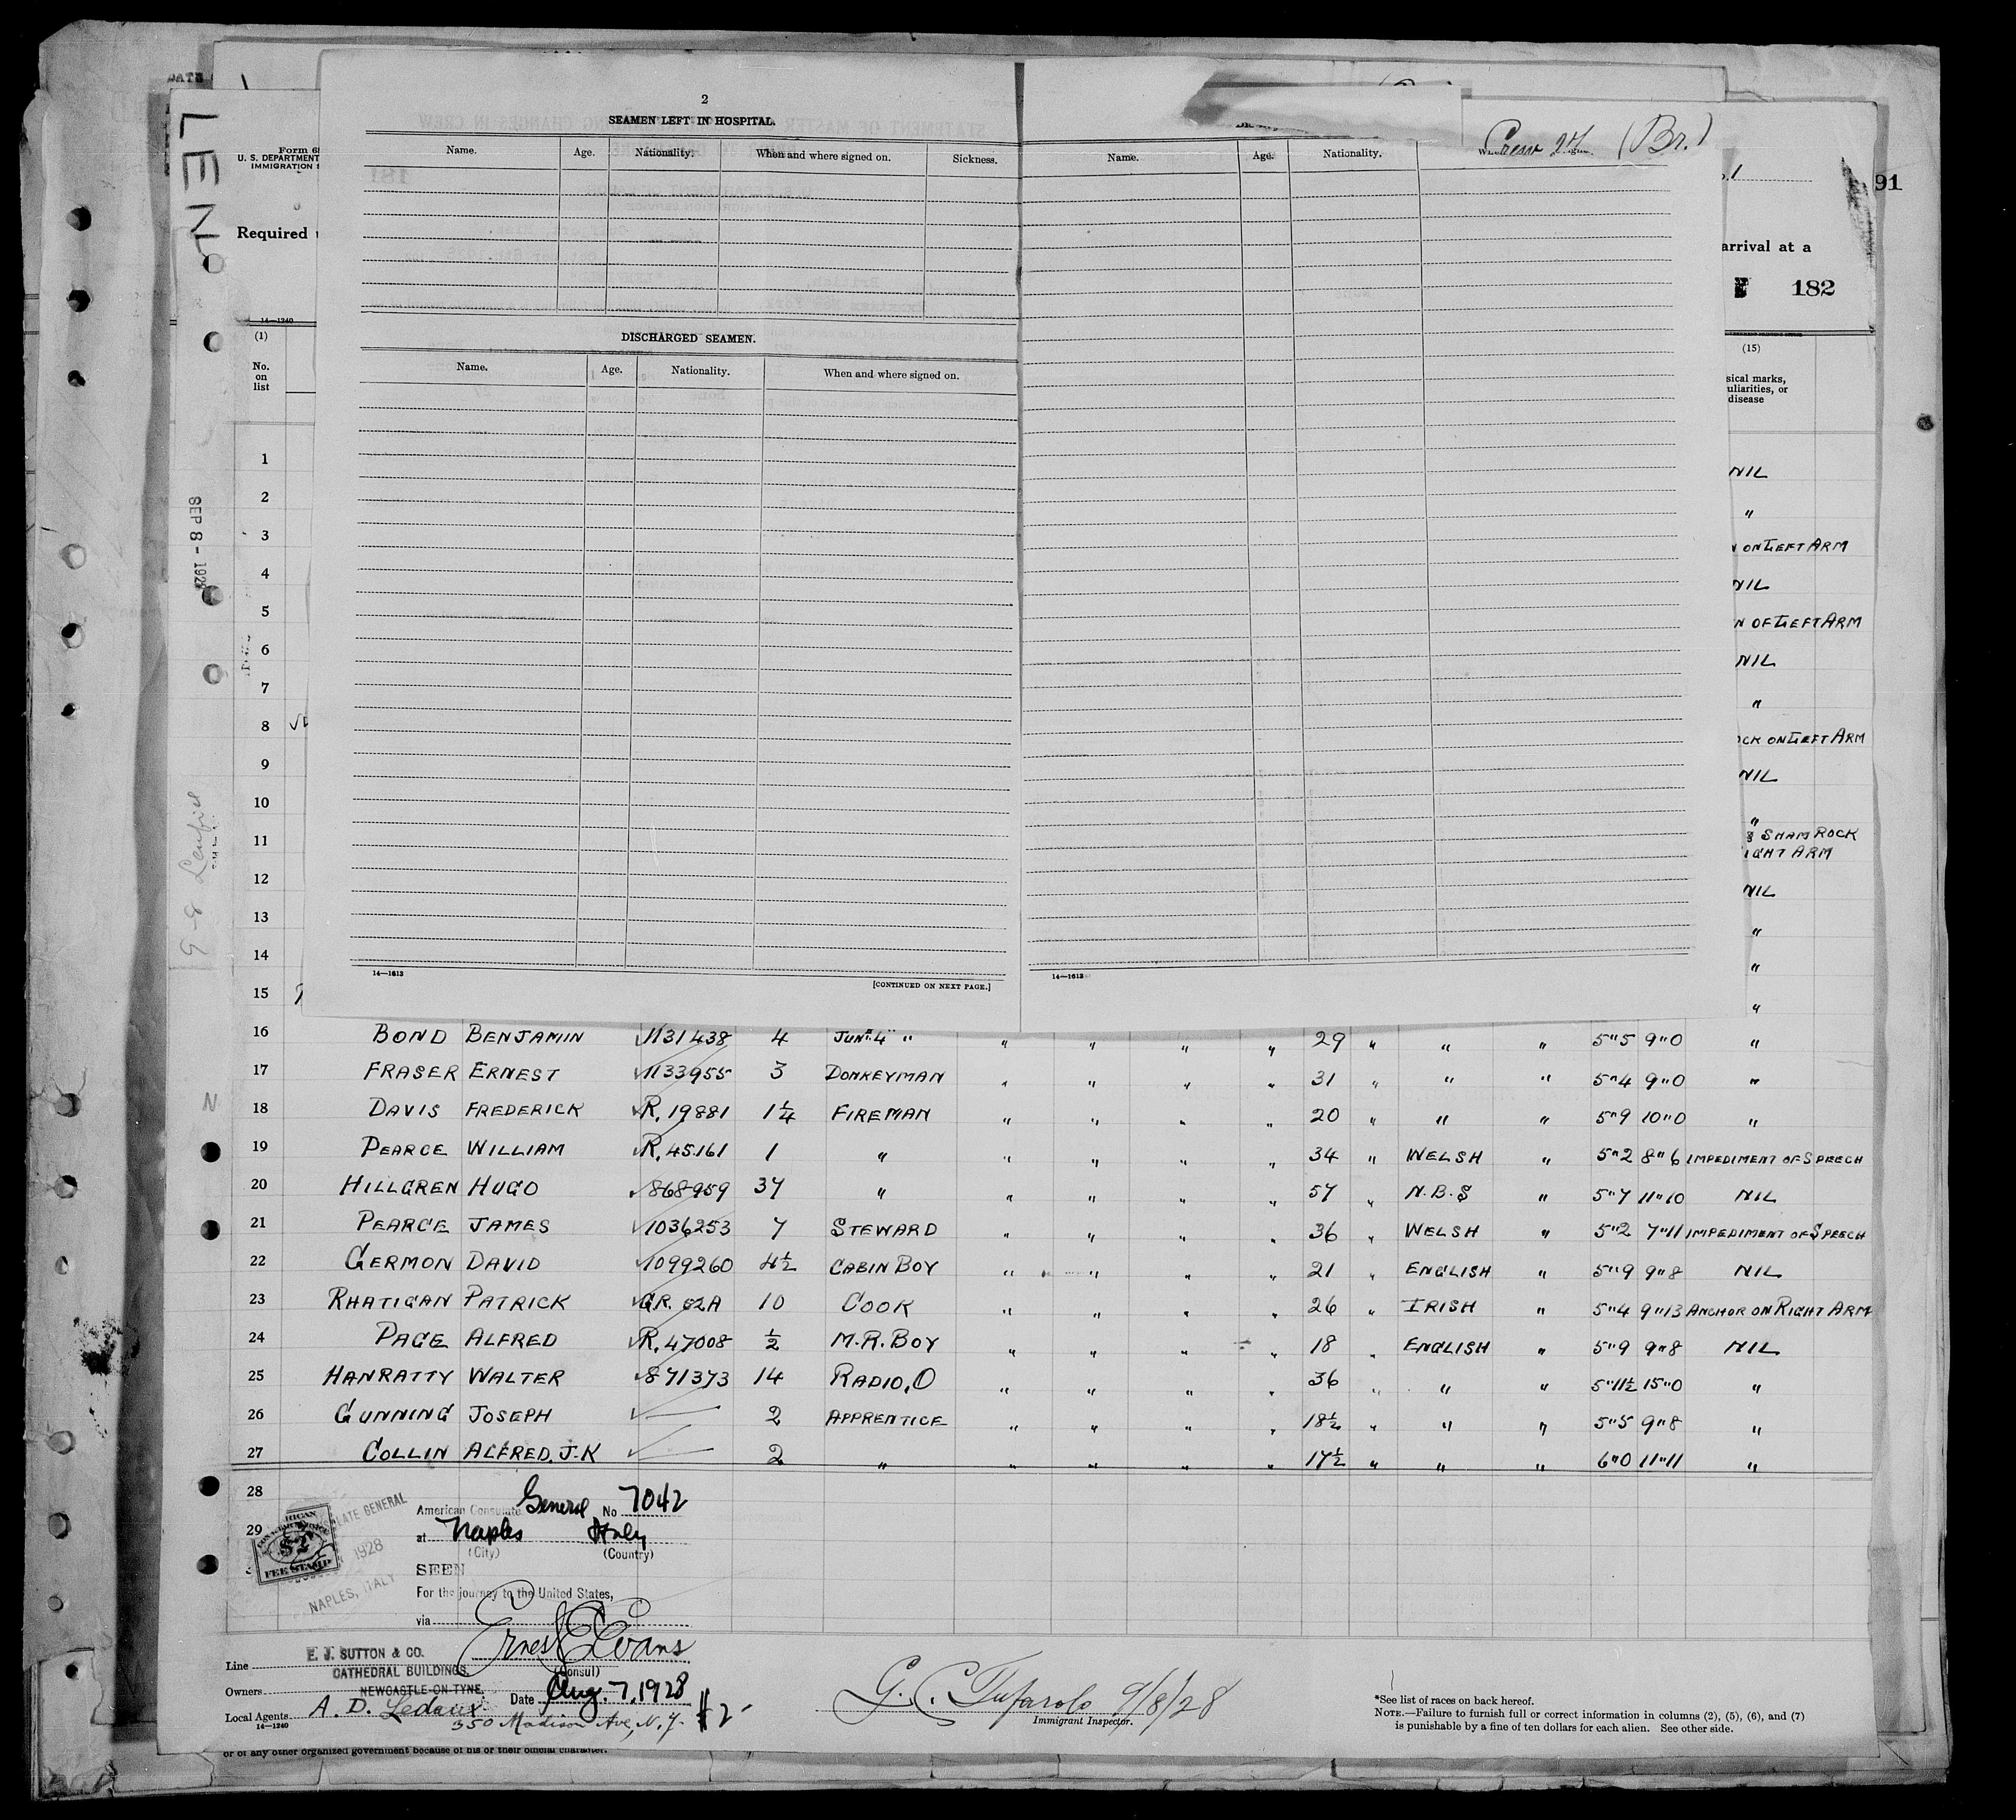 DATE
2
SEAMEN LEFT IN HOSPITAL.
Name. Age. Nationality. When and where signed on. Sickness.
Name. Age. Nationality.
Crew 27 (Br.)
LEN
U. S. DEPARTMENT
IMMIGRATION
91
Required
arrival at a
182
14—1240
DISCHARGED SEAMEN.
Name. Age. Nationality. When and where signed on.
(1)
No. on list
(15)
sical marks,
uliarities, or
disease
SEP 8 - 1928
1 NIL
2 "
3 ON LEFT ARM
4 NIL
5 OF LEFT ARM
6 NIL
7 "
8 OCK ON LEFT ARM
9 NIL
10 "
11 & SHAMROCK
IGHT ARM
12 NIL
13 "
14 "
15 "
14—1613
[CONTINUED ON NEXT PAGE.]
14—1613
16 BOND BENJAMIN 1131438 4 JUNR 4" " " " " " 29 " " " 5"5 9"0 "
17 FRASER ERNEST 1133955 3 DONKEYMAN " " " " 31 " " " 5"4 9"0 "
18 DAVIS FREDERICK R. 19881 1¼ FIREMAN " " " " 20 " " " 5"9 10"0 "
19 PEARCE WILLIAM R. 45161 1 " " " " " 34 " WELSH " 5"2 8"6 IMPEDIMENT OF SPEECH
20 HILLGREN HUGO 868959 37 " " " " " 57 " N.B.S " 5"7 11"10 NIL
21 PEARCE JAMES 1036253 7 STEWARD " " " " 36 " WELSH " 5"2 7"11 IMPEDIMENT OF SPEECH
22 GERMON DAVID 1099260 4½ CABIN BOY " " " " 21 " ENGLISH " 5"9 9"8 NIL
23 RHATIGAN PATRICK GR. 62A 10 COOK " " " " 26 " IRISH " 5"4 9"13 ANCHOR ON RIGHT ARM
24 PAGE ALFRED R. 47008 ½ M.R. BOY " " " " 18 " ENGLISH " 5"9 9"8 NIL
25 HANRATTY WALTER 871373 14 RADIO, O " " " " 36 " " " 5"11½ 15"0 "
26 GUNNING JOSEPH — 2 APPRENTICE " " " " 18½ " " " 5"5 9"8 "
27 COLLIN ALFRED. J-K — 2 " " " " " 17½ " " " 6"0 11"11 "
28
29
American Consulate General No 7042
at Naples Italy
(City) (Country)
SEEN
For the journey to the United States,
via
Ernest E Evans
(Consul)
Date Aug. 7, 1928
$2
FEE STAMP
1928
NAPLES, ITALY
Line E. J. SUTTON & CO.
CATHEDRAL BUILDINGS
Owners NEWCASTLE-ON-TYNE.
Local Agents A. D. Ledoux
350 Madison Ave, N. Y.
14—1240
G. C. Tufarolo 9/8/28
Immigrant Inspector.
*See list of races on back hereof.
NOTE.—Failure to furnish full or correct information in columns (2), (5), (6), and (7)
is punishable by a fine of ten dollars for each alien. See other side.
or of any other organized government because of his or their official character.